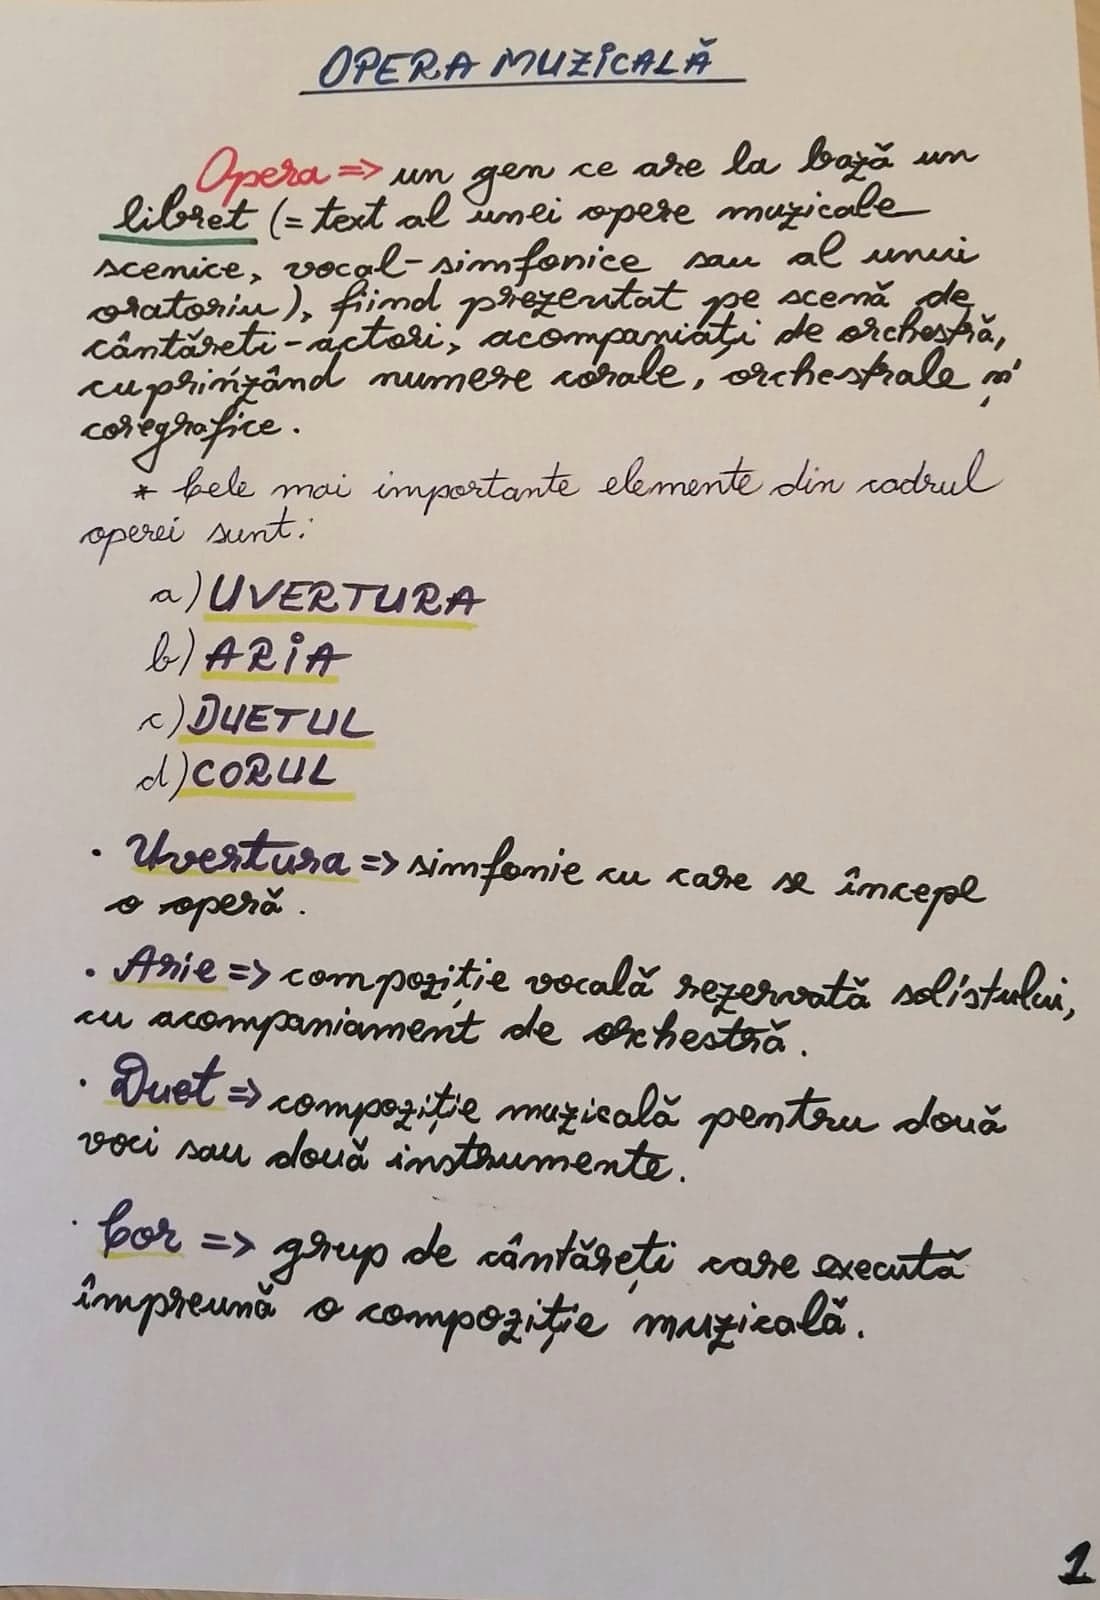 OPERA MUZICALĂ
Opera => un gen ce are la bază un
libret (= text al unei opere muzicale
scenice, vocal-simfonice sau al unui
oratoriu), fiind prezentat pe scenă de
cântăreti-actori, acompaniați de orchestră,
cuprinzând numere corale, orchestrale și
coregrafice.
* Cele mai importante elemente din cadrul
operei sunt:
a) UVERTURA
b) ARIA
c) DUETUL
d) CORUL
• Uvertura => simfonie cu care se începe
o operă.
• Arie => compoziție vocală rezervată solistului,
cu acompaniament de orchestră.
• Duet => compoziție muzicală pentru două
voci sau două instrumente.
• Cor => grup de cântăreți care execută
împreună o compoziție muzicală.
1